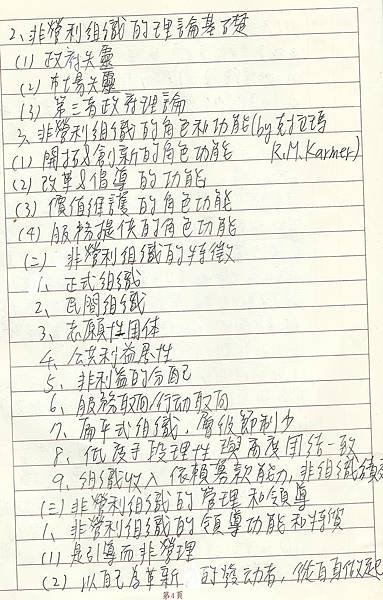 2、非營利組織的理論基了楚
(1) 政府失靈
(2) 市場失靈
(3) 第三者政府理論
3、非營利組織的角色和功能(by 克拉瑪
R.M.Karmer)
(1) 開拓&創新的角色功能
(2) 改革&倡導的功能
(3) 價值維護的角色功能
(4) 服務提供的角色功能
(二) 非營利組織的特徵
1、正式組織
2、民間組織
3、志願性团体
4、公共利益屬性
5、非利益的分配
6、服務取向/行动取向
7、扁平式組織，層級節制少
8、低度手段理性與高度团结一致
9、組織收入依賴募款能力，非組織績效
(三) 非營利組織的管理和領導
1、非營利組織的領導功能和特質
(1) 是引導而非管理
(2) 以自己為革新的發动者，從自身做起
第4頁